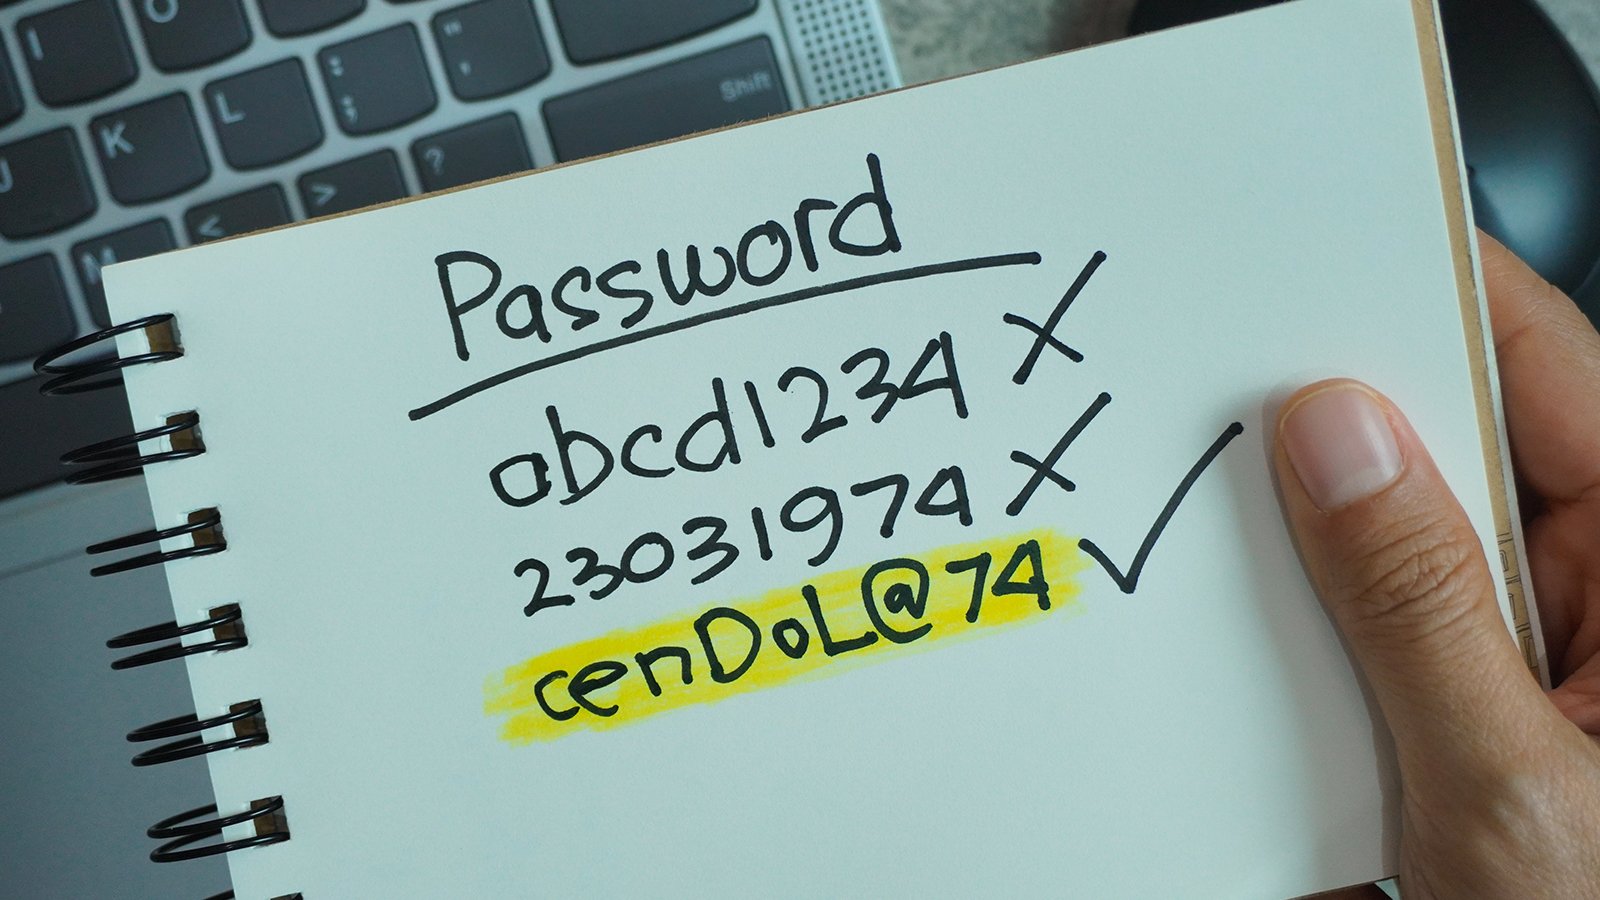 I O
J K L : ; " ' Shift
M < > ?
Password
abcd1234 X
23031974 X
cenDoL@74 ✓